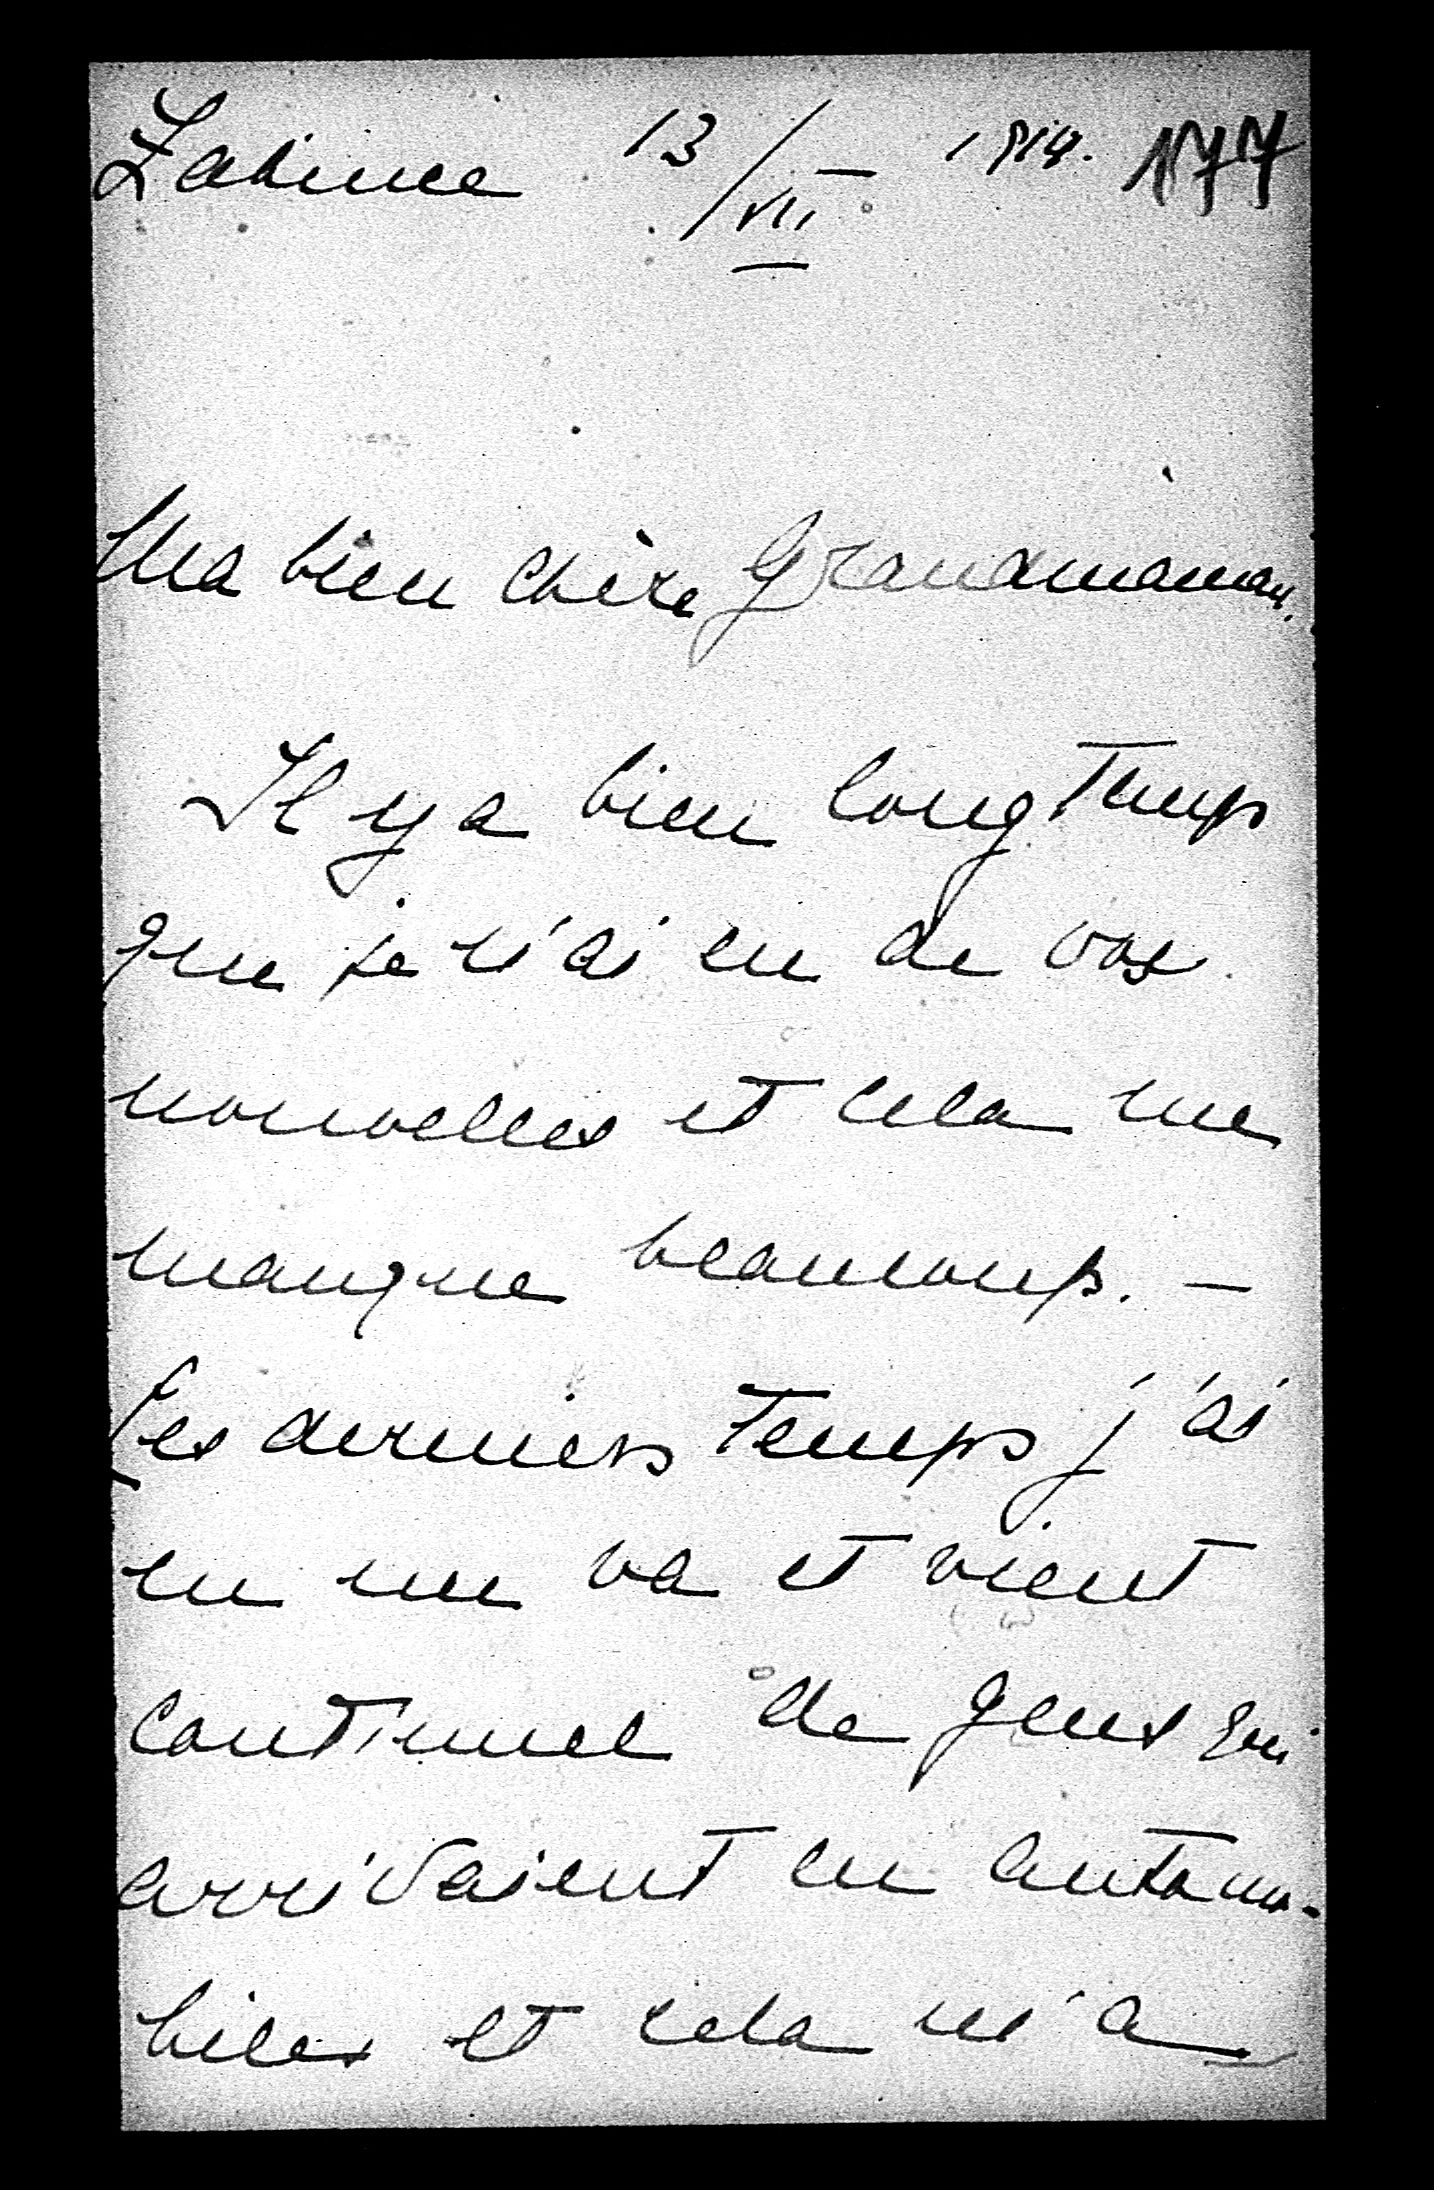 Żabince 13/VII 1914. 177
Ma bien chère Grandmaman.
Il y a bien longtemps
que je n'ai eu de vos
nouvelles et cela me
manque beaucoup. —
Ces derniers temps j'ai
eu un va et vient
continuel de gens qui
arrivaient en automo-
biles et cela m'a